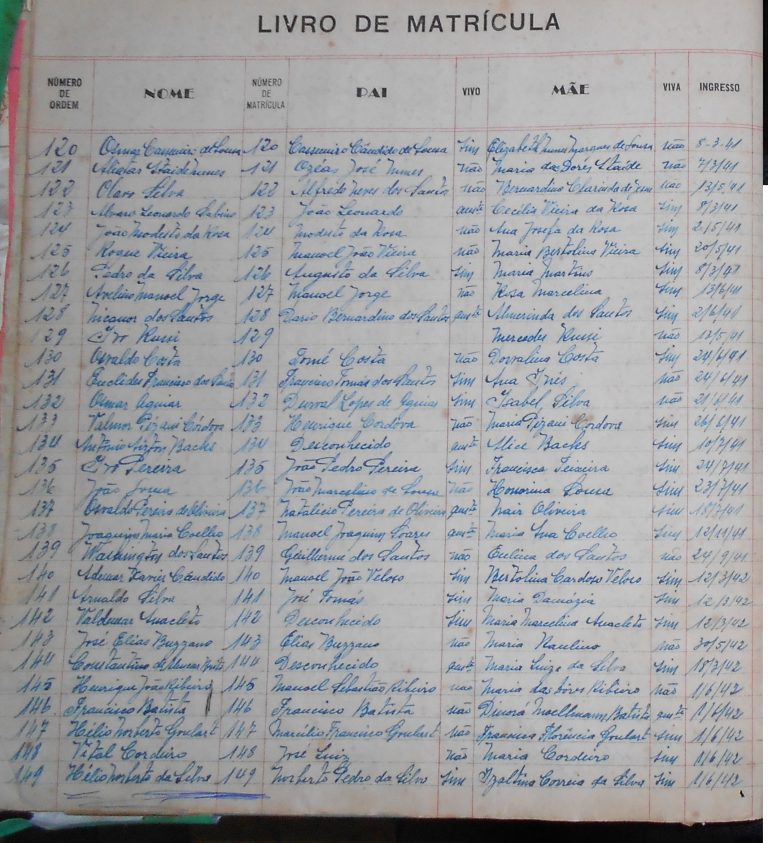 LIVRO DE MATRÍCULA
NÚMERO DE ORDEM NOME NÚMERO DE MATRÍCULA PAI VIVO MÃE VIVA INGRESSO
120 Osmar Casemiro de Sousa 120 Casemiro Cândido de Sousa sim Elizabeth Nunes Marques de Sousa não 8-3-41
121 Nunes 121 Ozéas José Nunes não Maria das Dores não 7/3/41
122 Olavo Silva 122 Alfredo Neves dos Santos não Bernardina Clarinda de não 13/5/41
123 Alvaro Leonardo Sabino 123 João Leonardo Cecilia Vieira da Rosa sim 8/3/41
124 João Modesto da Rosa 124 Modesto da Rosa não Ana Josefa da Rosa sim 2/5/41
125 Roque Vieira 125 Manoel João Vieira não Maria Bertolina Vieira sim 20/5/41
126 Pedro da Silva 126 Augusto da Silva sim Maria Martins sim 8/3/41
127 Avelino Manoel Jorge 127 Manoel Jorge não Rosa Marcelina sim 13/6/41
128 Nicanor dos Santos 128 Dario Bernardino dos Santos Almerinda dos Santos sim 2/6/41
129 Ivo Kussi 129 Mercedes Kussi não 12/5/41
130 Osvaldo Costa 130 Tomé Costa não Dorvalina Costa sim 24/6/41
131 Euclides Francisco dos Santos 131 Francisco Tomás dos Santos sim Ana Inês não 24/6/41
132 Osmar Aguiar 132 Durval Lopes de Aguiar sim Isabel Silva não 21/6/41
133 Valmor Pizani Córdova 133 Henrique Cordova não Maria Pizani Cordova sim 26/6/41
134 Antônio Backes 134 Desconhecido Alice Backes sim 10/7/41
135 Ivo Pereira 135 João Pedro Pereira sim Francisca Teixeira sim 24/7/41
136 João 136 João Marcelino de Sousa não Honorina Sousa sim 23/7/41
137 Osvaldo Pereira de Oliveira 137 Natalicio Pereira de Oliveira Nair Oliveira sim 18/7/41
138 Joaquim Mario Coelho 138 Manoel Joaquim Soares Maria Ana Coelho sim 12/11/41
139 Washington dos Santos 139 Guilherme dos Santos não dos Santos não 24/9/41
140 Ademar Xavier Cândido 140 Manoel João Veloso sim Bertolina Cardoso Veloso sim 12/3/42
141 Arnaldo Silva 141 José Tomás sim Maria Damázia sim 12/3/42
142 Valdemar Anacleto 142 Desconhecido sim Maria Marcelina Anacleto sim 12/3/42
143 José Elias Buzzano 143 Elias Buzzano não Maria Naulino não 30/5/42
144 Constantino de 144 Desconhecido Maria Luiza da Silva sim 18/3/42
145 Henrique João Ribeiro 145 Manoel Sebastião Ribeiro não Maria das Ribeiro não 1/6/42
146 Francisco Batista 146 Francisco Batista não Dinorá Moellmann Batista 1/6/42
147 Hélio Norberto Goulart 147 Marcilio Francisco Goulart não Francisca Florencia Goulart sim 1/6/42
148 Vital Cordeiro 148 José Luiz não Maria Cordeiro sim 1/6/42
149 Hélio Norberto da Silva 149 Norberto Pedro da Silva sim Izaltina Correia da Silva sim 1/6/42